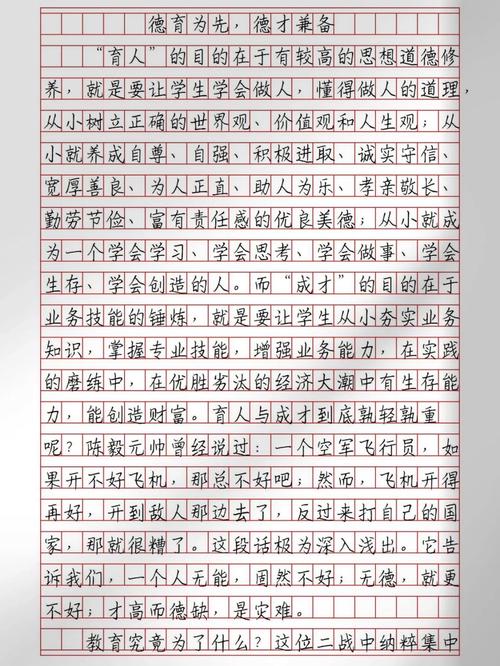 德育为先，德才兼备
“育人”的目的在于有较高的思想道德修
养，就是要让学生学会做人，懂得做人的道理，
从小树立正确的世界观、价值观和人生观；从
小就养成自尊、自强、积极进取、诚实守信、
宽厚善良、为人正直、助人为乐、孝亲敬长、
勤劳节俭、富有责任感的优良美德；从小就成
为一个学会学习、学会思考、学会做事、学会
生存、学会创造的人。而“成才”的目的在于
业务技能的锤炼，就是要让学生从小夯实业务
知识，掌握专业技能，增强业务能力，在实践
的磨练中，在优胜劣汰的经济大潮中有生存能
力，能创造财富。育人与成才到底孰轻孰重
呢？陈毅元帅曾经说过：一个空军飞行员，如
果开不好飞机，那总不好吧；然而，飞机开得
再好，开到敌人那边去了，反过来打自己的国
家，那就很糟了。这段话极为深入浅出。它告
诉我们，一个人无能，固然不好；无德，就更
不好；才高而德缺，是灾难。
教育究竟为了什么？这位二战中纳粹集中